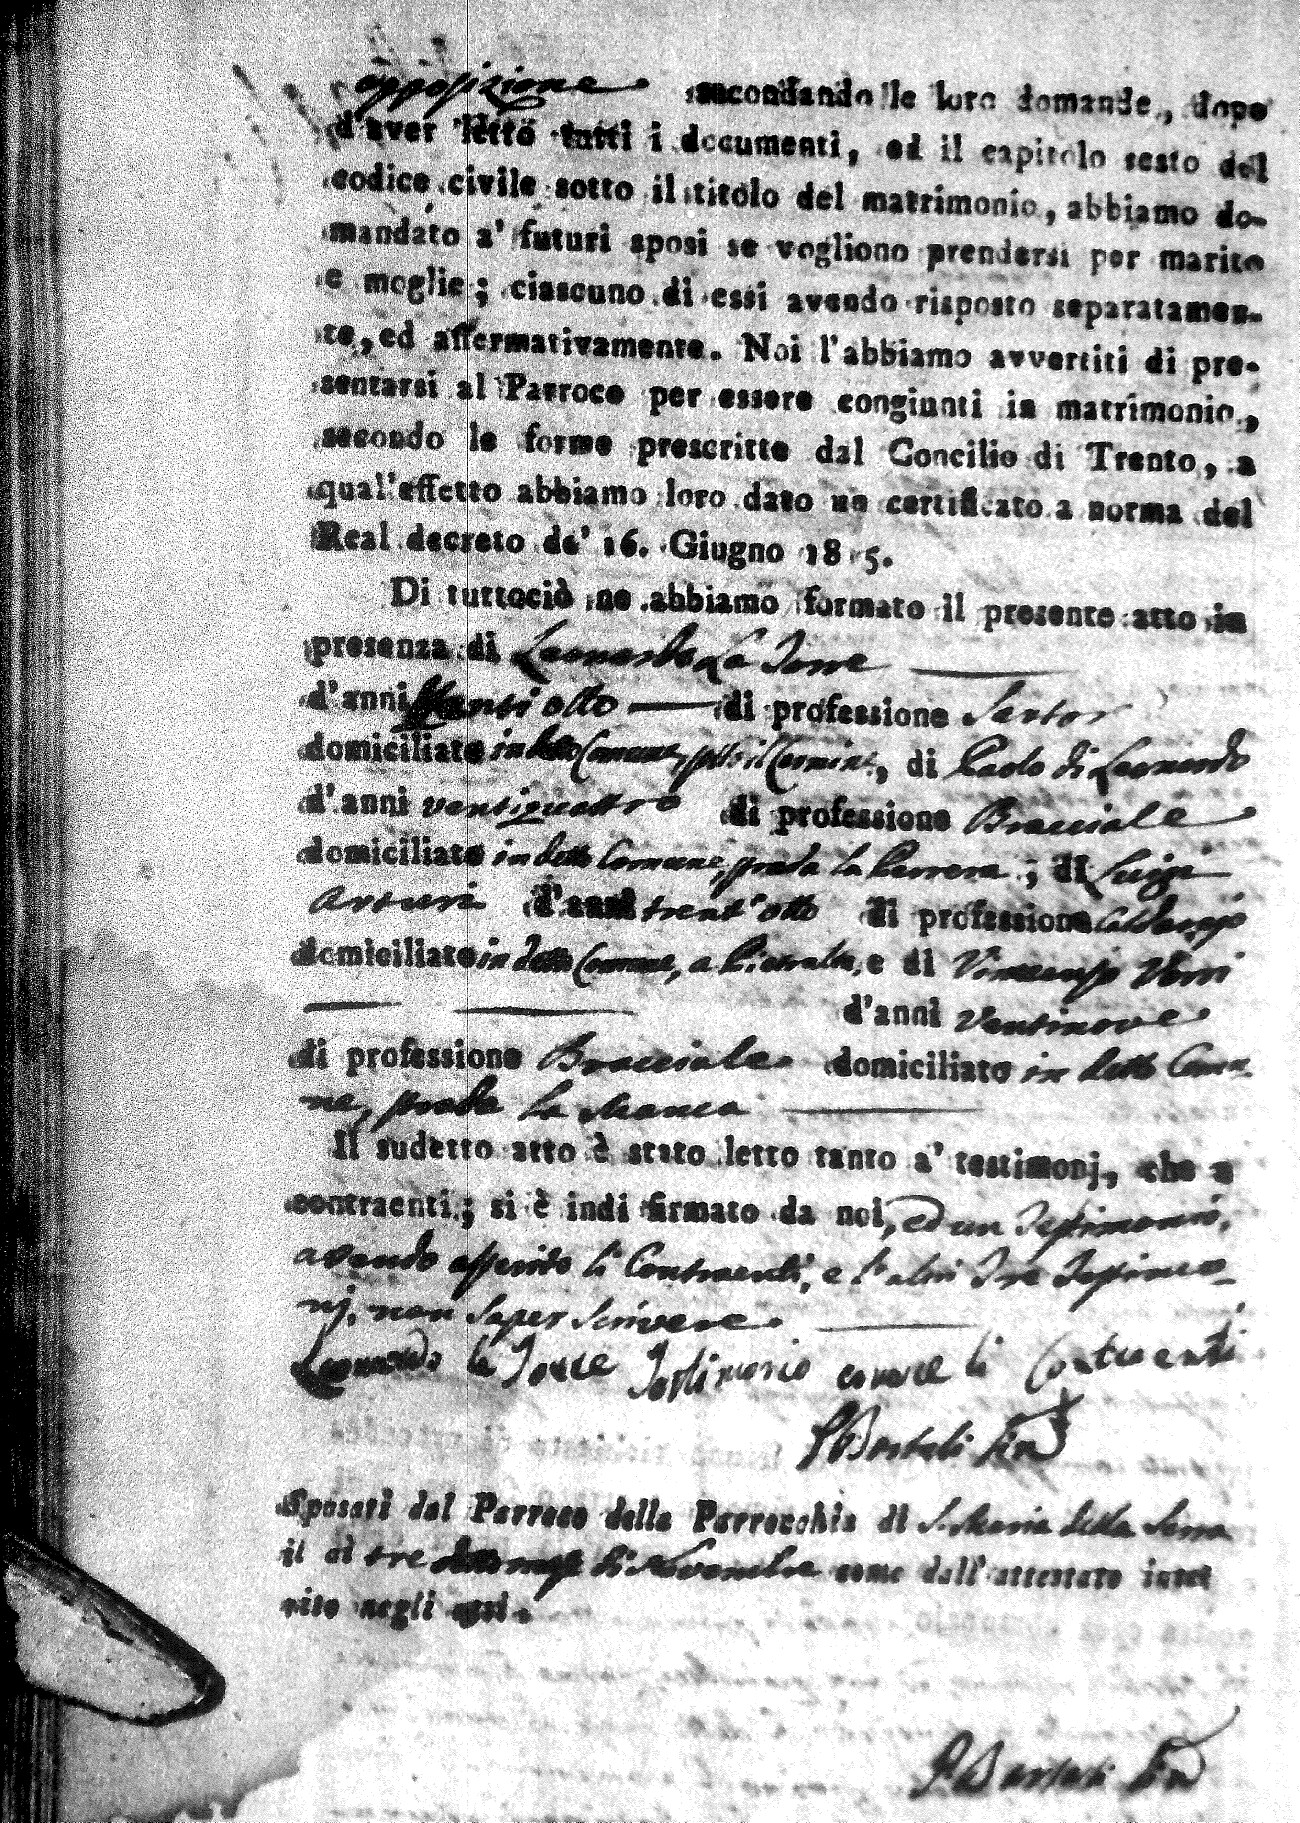 opposizione secondando le loro domande, dopo
d'aver letto tutti i documenti, ed il capitolo sesto del
codice civile sotto il titolo del matrimonio, abbiamo do-
mandato a' futuri sposi se vogliono prendersi per marito
e moglie; ciascuno di essi avendo risposto separatamen-
te, ed affermativamente. Noi l'abbiamo avvertiti di pre-
sentarsi al Parroco per essere congiunti in matrimonio,
secondo le forme prescritte dal Concilio di Trento, a
qual'effetto abbiamo loro dato un certificato a norma del
Real decreto de' 16. Giugno 18 5.
Di tuttociò ne abbiamo formato il presente atto in
presenza di Leonardo La Torre
d'anni Ventiotto di professione Sartor
domiciliato in detto Comune, di Paolo di Leonardo
d'anni ventiquattro di professione Bracciale
domiciliato in detto Comune, strada la ; di Luigi
Arturi d'anni trent'otto di professione Calderajo
domiciliato in detto Comune, a e di Vincenzo Verri
d'anni Ventinove
di professione Bracciale domiciliato in detto Comu-
ne, strada la Manca
Il sudetto atto è stato letto tanto a' testimonj, che a
contraenti; si è indi firmato da noi, ed un Testimonio,
avendo asserito li Contraenti, e l'altri Tre Testimo-
nj, non saper Scrivere.
Leonardo la Torre Testimonio come li Contraenti
Sposati dal Parroco della Parrocchia di S. Maria della Serra
il di tre del mese di Novembre come dall'attestato inse
rito negli atti.